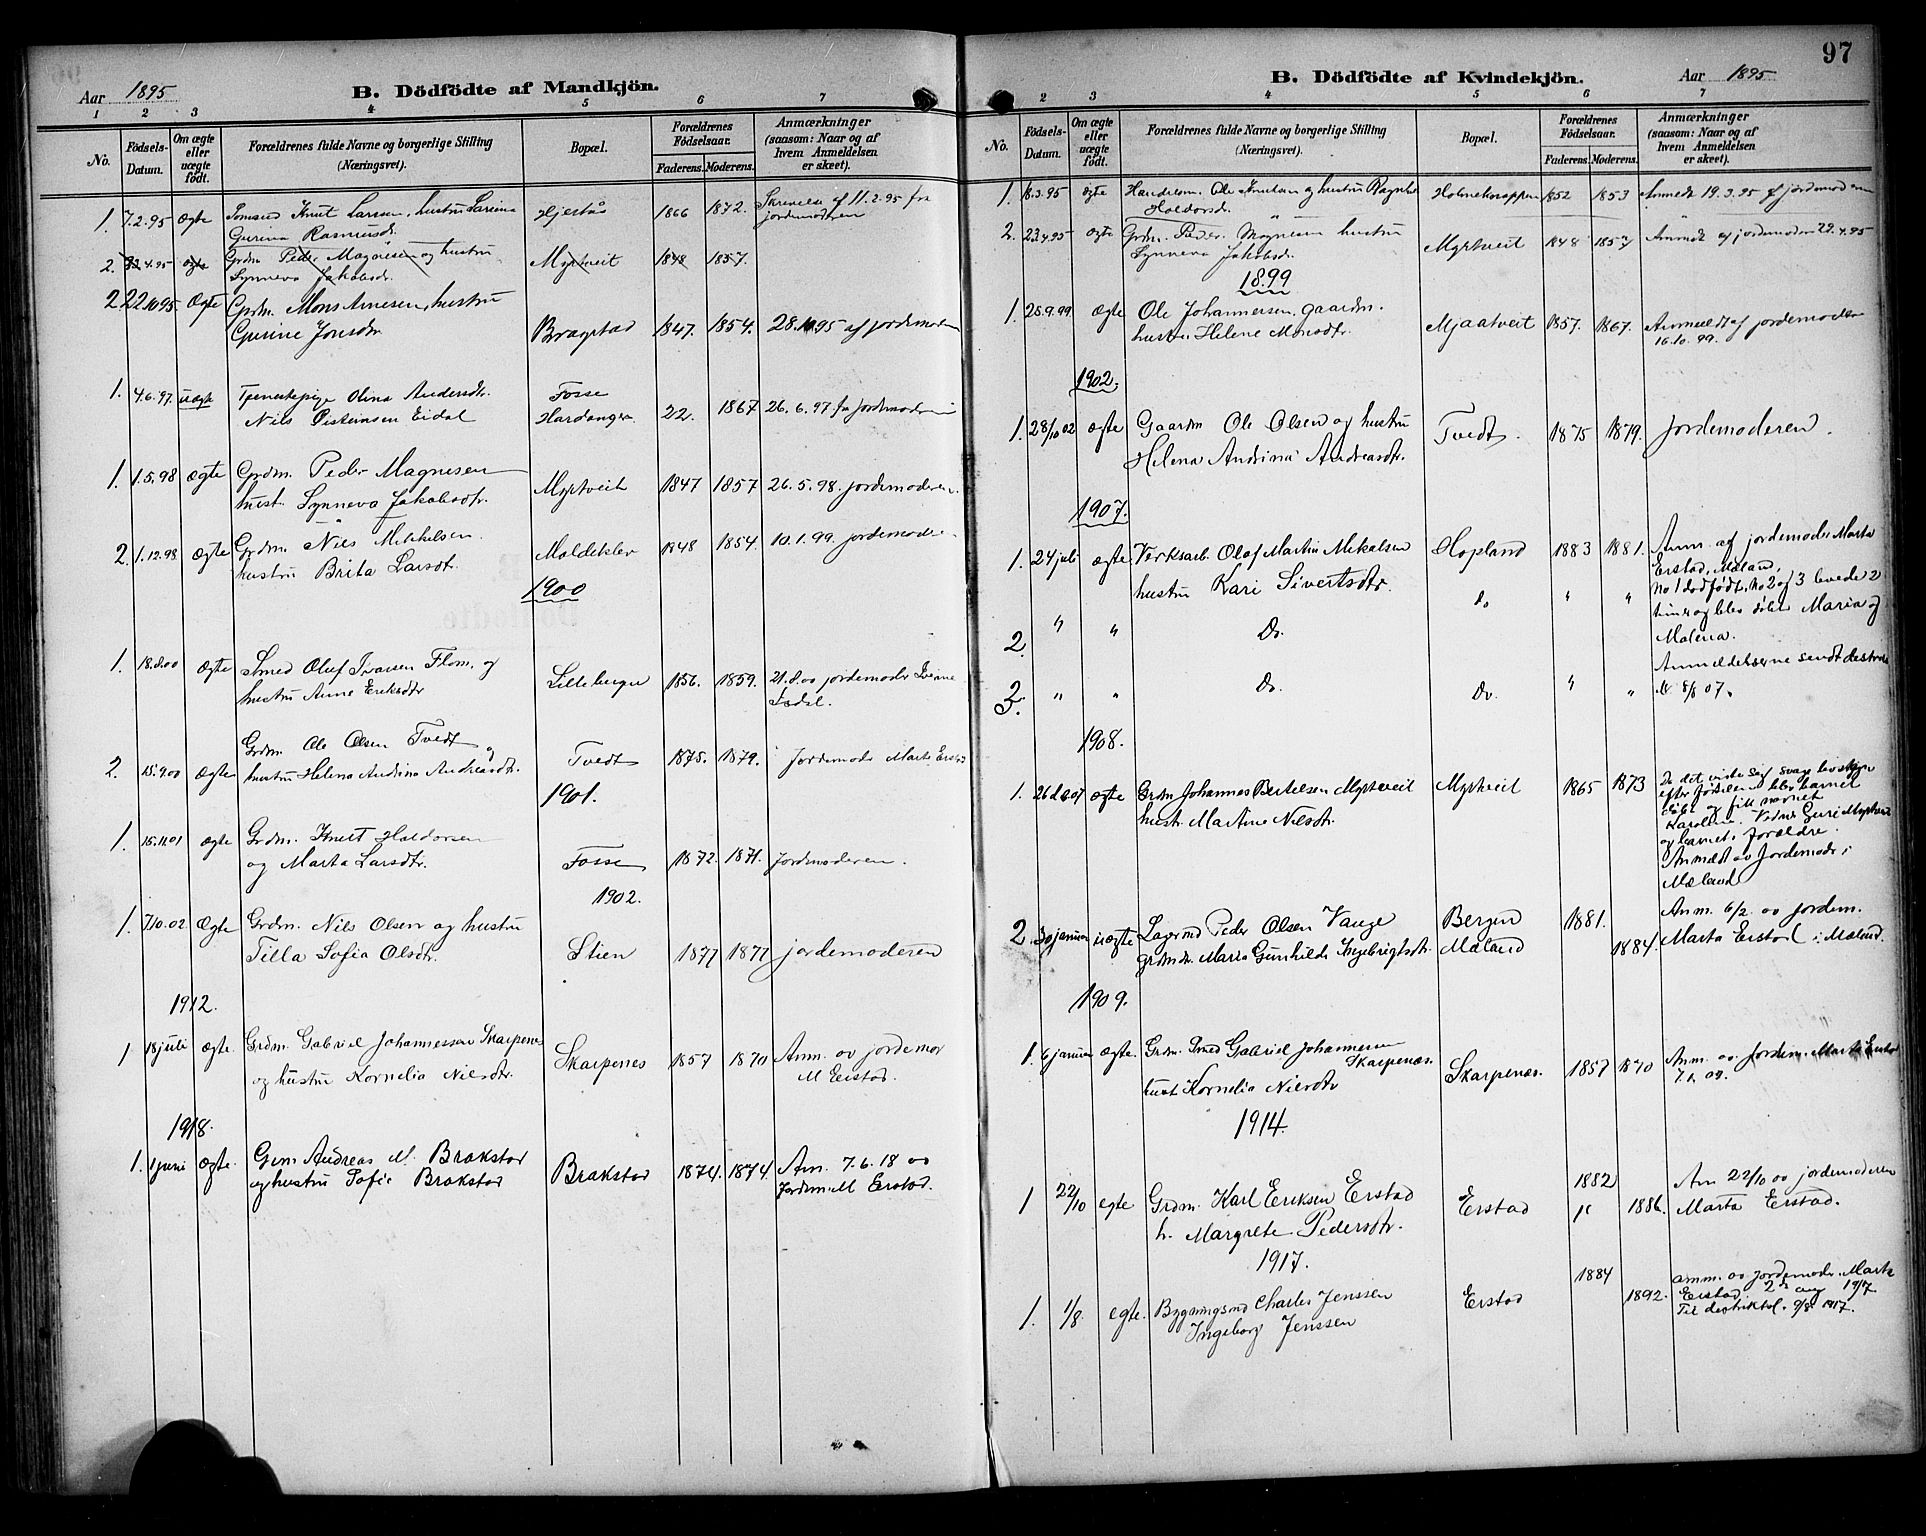 Aar 1895
B. Dödfödte af Mandkjön.
1 2 3 4 5 6 7
No. Födsels-Datum. Om ægte eller uægte født. Forældrenes fulde Navne og borgerlige Stilling (Næringsvei). Bopæl. Forældrenes Födselsaar. Faderens. Moderens. Anmærkninger (saasom: Naar og af hvem Anmeldelsen er skeet).
1. 7.2.95 ægte Knut Larsen, hustru Larina Hjertås 1866 1872. Skrivelse af 11.2.95 fra
Gurina Rasmusdr. jordemoderen
2. 22.4.95 ægte Grdm Peder Magnesen og hustru Myrtveit 1848 1857.
Synneva Jakobsdr.
2. 22.10.95. Ægte Grdm. Mons Arnesen, hustru
Gurine Jonsdtr Bragstad 1847. 1854. 28.10.95 af jordemoderen
1. 4.6.97. uægte Tjenestepige Olina Andersdtr. Fosse
Nils Eidal Hardanger 22. 1867 26.6.97 fra jordemoderen
1. 1.5.98 ægte Grdm. Peder Magnesen
hust. Synneva Jakobsdtr. Myrtveit 1847 1857 26.5.98. jordemoderen.
2. 1.12.98 Ægte Grdm. Nils Mikkelsen. Moldeklev 1848 1854. 10.1.99 jordemoder.
hustru Brita Larsdt.
1900
1. 18.8.00 Ægte Smed Oluf Ivarsen Flom, og
hustru Anne Eriksdtr Lilleberger 1856. 1859. 21.8.00 jordemoder
2. 15.9.00 ægte Grdm Ole Olsen Tvedt og
hustru Helena Andrina Andreasdtr. Tvedt 1875. 1879. Jordemoder Marta Erstad
1901.
1. 15.11.01 ægte Grdm. Knut Haldorsen
og Marta Larsdtr. Fosse 1872. 1871. Jordemoderen.
1902.
1. 7.10.02 Ægte Grdm. Nils Olsen og hustru
Tilla Sofia Olsdtr. Stien 1877 1877 jordemoderen
1912.
1 18 juli ægte. Grdm. Gabriel Johannessen Skarpenes Skarpenes 1857 1870 Anm. ov jordemor
og hustru Kornelia Nilsdtr. M Erstad.
1918.
1. 1 juni ægte. Gm. Andreas M. Brakstad Brakstad 1874. 1874. Am. 7.6.18 ov
og hustru Sofie Brakstad Jordem M Erstad.
97
B. Dödfödte af Kvindekjön.
Aar 1895
2 3 4 5 6 7
No. Födsels-Datum. Om ægte eller uægte födt. Forældrenes fulde Navne og borgerlige Stilling (Næringsvei). Bopæl. Forældrenes Födselsaar. Faderens. Moderens. Anmærkninger (saasom: Naar og af hvem Anmeldelsen er skeet).
1. 18.3.95 ægte Ole Knutsen og hustru Ragnhild 1852 1853 Anmeldt 19.3.95 af jordemoderen
Haldorsd.
2. 22.4.95 ægte Grdm. Peder Magnesen hustru Myrtveit 1848 1857 Anmeldt af jordemoder 29.4.95
Synneva Jakobsdr.
1899
1. 28.9.99 ægte Ole Johannessen, gaardm.
hustru Helene Monsdtr. Mjaatveit 1857. 1867. Anmeldt af jordemoder
16.10.99.
1902.
1. 28/10 02 ægte Gaardm Ole Olsen og hustru Tvedt. 1875 1879. jordemoderen.
Helena Andrina Andreasdtr.
1907.
1. 24 juli ægte Verksarb. Olaf Martin Mikalsen Hopland 1883 1881. Anm. af jordemoder Marta
hustru Kari Sivertsdtr. Erstad, Mæland,
No 1 dødfødt, No 2 og 3 levede 2
timer og blev døbt Maria og
Malena.
2. " " Do. do " "
Anmeldelserne sendt
3. " " Do. Do. " " 8/8 07.
1908.
1. 26 d 6 07 ægte Grdm Johannes Bertelsen Myrtveit Myrtveit 1865 1873 Da det viste seg svage
hust. Martine Nilsdtr. efter fødselen blev barnet
døbt og fikk navnet
Karoline. Vidne Guri Myrtveit
og barnets forældre.
Anmeldt ov Jordemoder i
Mæland
2 30 januar uægte Peder Olsen Vange Bergen 1881. Anm. 6/2 ov jordem.
grdmdr. Maria Gunhilde Ingebrigtsdtr. Mæland 1884. Marta Erstad i Mæland.
1909.
1. 6 januar ægte. Grdm. Smed Gabriel Johannessen Anm. ov. Jordem. Marta Erstad
Skarpenæs. Skarpenæs. 1857 1870 7.1.09.
hust Kornelia Nilsdtr
1914.
1 22/10 egte Grdm. Karl Eriksen Erstad Erstad 1882 " 1886. An 22/10 ov jordemoderen
h. Margrete Pedersdtr. Marta Erstad.
1917.
1. 1/8 egte. Bygningsmd Charles Jenssen Erstad 1884 1892. anm. ov jordemoder Marta
Ingeborg Jenssen Erstad. 2 aug 1917
Til distriktsl. 9/8 1917.